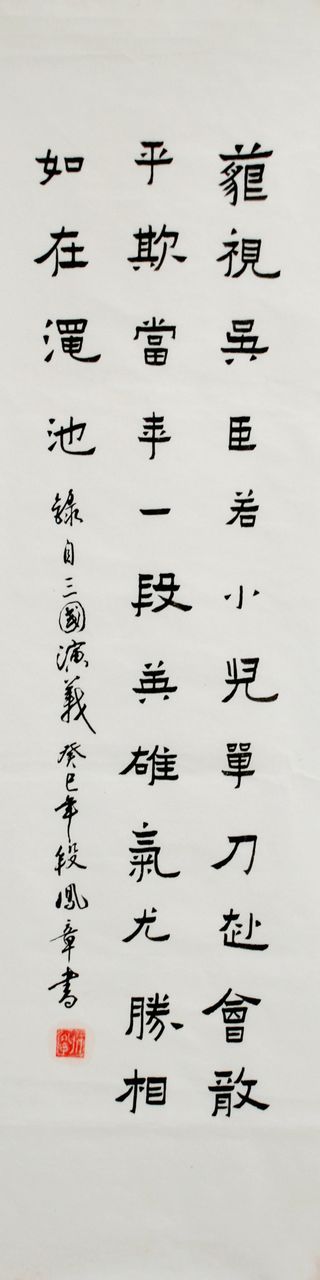 藐視吳臣若小兒單刀赴會敢
平欺當年一段英雄氣尤勝相
如在澠池
錄自三國演義癸巳年段鳳章書